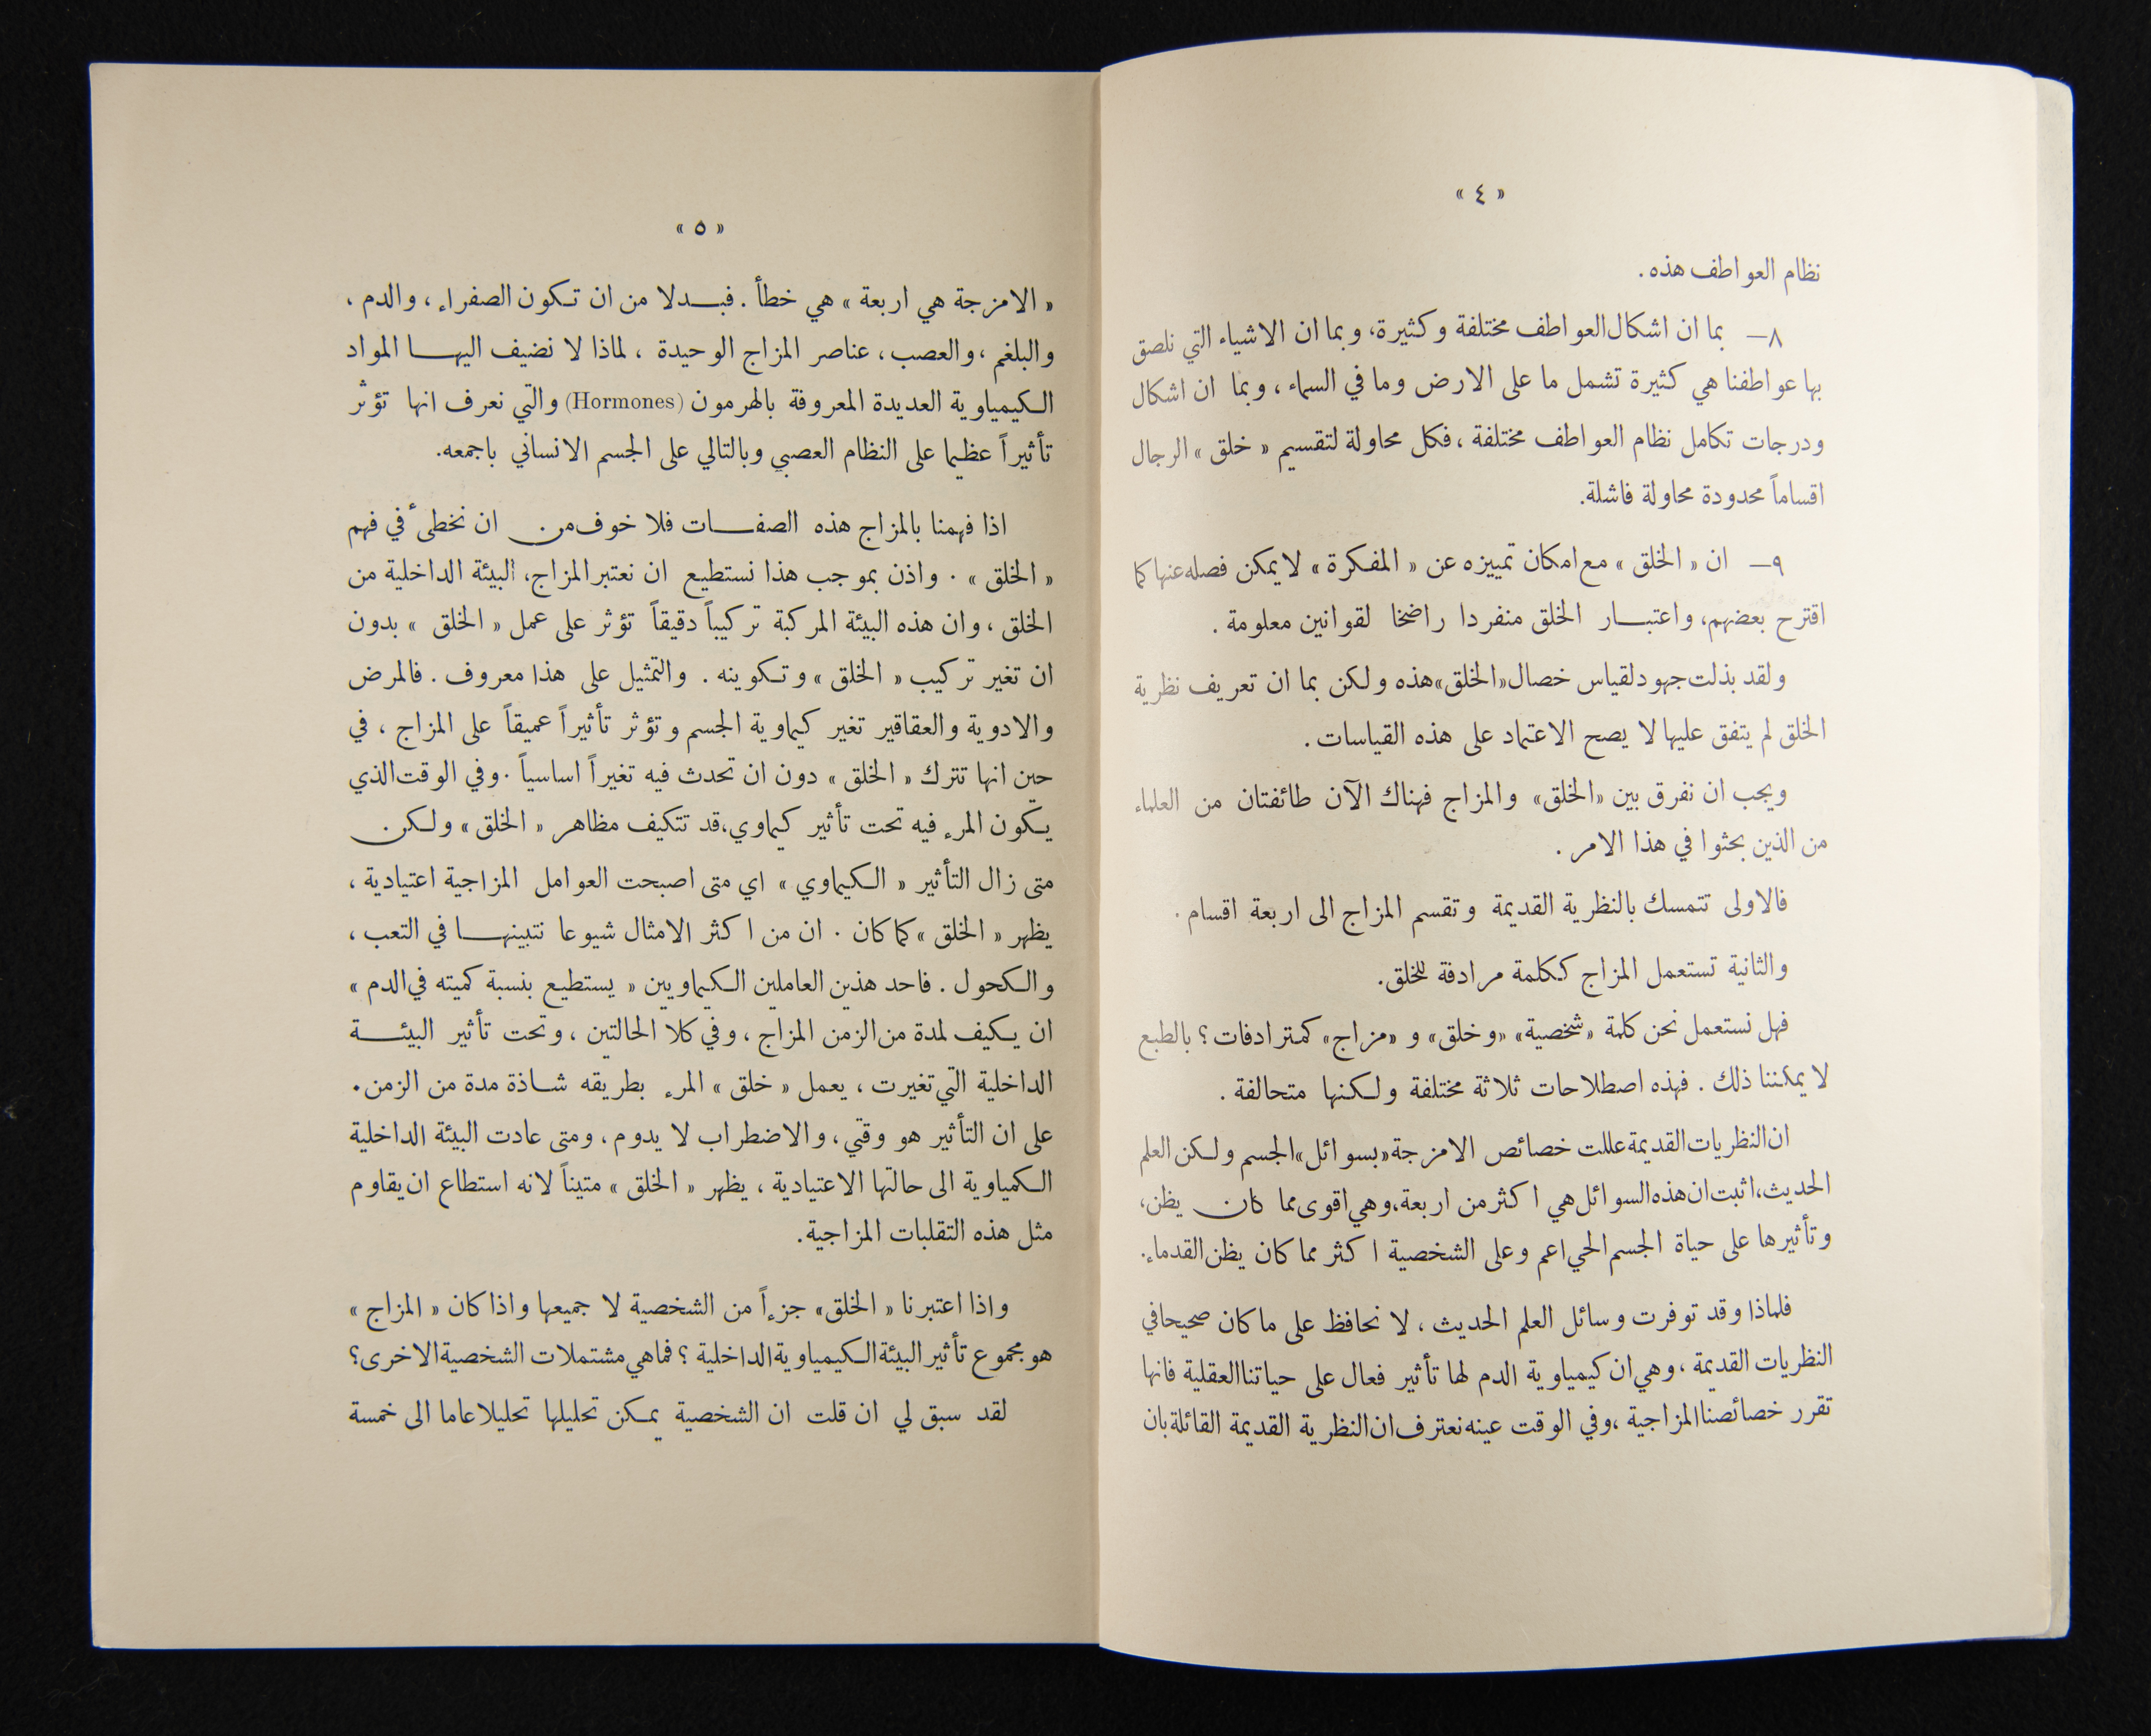 « ٤ »
نظام العواطف هذه .
٨— بما ان اشكال العواطف مختلفة وكثيرة، وبما ان الاشياء التي نلصق
بها عواطفنا هي كثيرة تشمل ما على الارض وما في السماء ، وبما ان اشكال
ودرجات تكامل نظام العواطف مختلفة ، فكل محاولة لتقسيم « خلق » الرجال
اقساماً محدودة محاولة فاشلة.
٩— ان « الخلق » مع امكان تمييزه عن « المفكرة » لا يمكن فصله عنها كما
اقترح بعضهم، واعتبار الخلق منفردا راضخا لقوانين معلومة .
ولقد بذلت جهود لقياس خصال «الخلق» هذه ولكن بما ان تعريف نظرية
الخلق لم يتفق عليها لا يصح الاعتماد على هذه القياسات .
ويجب ان نفرق بين «الخلق» والمزاج فهناك الآن طائفتان من العلماء
من الذين بحثوا في هذا الامر .
فالاولى تتمسك بالنظرية القديمة وتقسم المزاج الى اربعة اقسام .
والثانية تستعمل المزاج ككلمة مرادفة للخلق.
فهل نستعمل نحن كلمة «شخصية» «وخلق» و «مزاج» كمترادفات ؟ بالطبع
لا يمكننا ذلك . فهذه اصطلاحات ثلاثة مختلفة ولكنها متحالفة .
ان النظريات القديمة عللت خصائص الامزجة «بسوائل» الجسم ولكن العلم
الحديث، اثبت ان هذه السوائل هي اكثر من اربعة، وهي اقوى مما كان يظن،
وتأثيرها على حياة الجسم الحي اعم وعلى الشخصية اكثر مما كان يظن القدماء.
فلماذا وقد توفرت وسائل العلم الحديث ، لا نحافظ على ما كان صحيحا في
النظريات القديمة ، وهي ان كيمياوية الدم لها تأثير فعال على حياتنا العقلية فانها
تقرر خصائصنا المزاجية ، وفي الوقت عينه نعترف ان النظرية القديمة القائلة بان
« ٥ »
« الامزجة هي اربعة » هي خطأ . فبدلا من ان تكون الصفراء ، والدم ،
والبلغم ، والعصب ، عناصر المزاج الوحيدة ، لماذا لا نضيف اليها المواد
الكيمياوية العديدة المعروفة بالهرمون (Hormones) والتي نعرف انها تؤثر
تأثيراً عظيما على النظام العصبي وبالتالي على الجسم الانساني باجمعه.
اذا فهمنا بالمزاج هذه الصفات فلا خوف من ان نخطىء في فهم
« الخلق » . واذن بموجب هذا نستطيع ان نعتبر المزاج، البيئة الداخلية من
الخلق ، وان هذه البيئة المركبة تركيباً دقيقاً تؤثر على عمل « الخلق » بدون
ان تغير تركيب « الخلق » وتكوينه . والتمثيل على هذا معروف . فالمرض
والادوية والعقاقير تغير كيماوية الجسم وتؤثر تأثيراً عميقاً على المزاج ، في
حين انها تترك « الخلق » دون ان تحدث فيه تغيراً اساسياً . وفي الوقت الذي
يكون المرء فيه تحت تأثير كيماوي، قد تتكيف مظاهر « الخلق » ولكن
متى زال التأثير « الكيماوي » اي متى اصبحت العوامل المزاجية اعتيادية ،
يظهر « الخلق » كما كان . ان من اكثر الامثال شيوعا نتبينها في التعب ،
والكحول . فاحد هذين العاملين الكيماويين « يستطيع بنسبة كميته في الدم »
ان يكيف لمدة من الزمن المزاج ، وفي كلا الحالتين ، وتحت تأثير البيئة
الداخلية التي تغيرت ، يعمل « خلق » المرء بطريقه شاذة مدة من الزمن.
على ان التأثير هو وقتي ، والاضطراب لا يدوم ، ومتى عادت البيئة الداخلية
الكمياوية الى حالتها الاعتيادية ، يظهر « الخلق » متيناً لانه استطاع ان يقاوم
مثل هذه التقلبات المزاجية.
واذا اعتبرنا « الخلق» جزءاً من الشخصية لا جميعها واذا كان « المزاج »
هو مجموع تأثير البيئة الكيمياوية الداخلية ؟ فما هي مشتملات الشخصية الاخرى؟
لقد سبق لي ان قلت ان الشخصية يمكن تحليلها تحليلا عاما الى خمسة